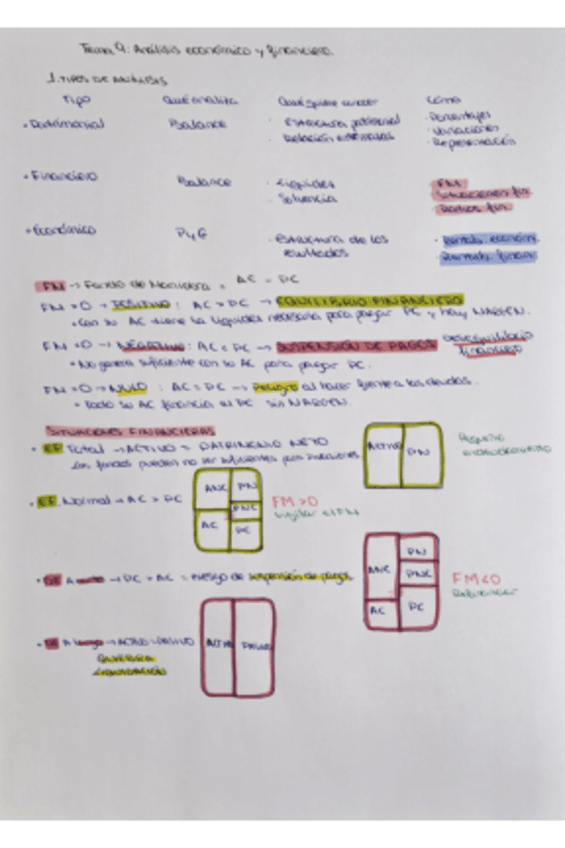 Tema 9: Análisis económico y financiero.
1. TIPOS DE ANÁLISIS
Tipo Qué analiza Qué quiere conocer Cómo
• Patrimonial Balance · Estructura patrimonial · Porcentajes
· Relación entre masas · Variaciones
· Representación
• Financiero Balance · Liquidez · FM
· Solvencia · Situaciones fin.
· Ratios fin.
• Económico PyG · Estructura de los resultados · Rentab. económ.
· Rentab. financ.
FM → Fondo de Maniobra = AC - PC
FM > 0 → POSITIVO : AC > PC → EQUILIBRIO FINANCIERO
• Con su AC tiene la liquidez necesaria para pagar PC y hay MARGEN.
FM < 0 → NEGATIVO : AC < PC → SUSPENSIÓN DE PAGOS Desequilibrio financiero
• No genera suficiente con su AC para pagar PC.
FM = 0 → NULO : AC = PC → Peligro al hacer frente a las deudas.
• Todo su AC financia el PC sin MARGEN.
SITUACIONES FINANCIERAS
• EF Total → ACTIVO = PATRIMONIO NETO
Los fondos pueden no ser suficientes para inversiones
Activo PN
Pequeño
• EF Normal → AC > PC
ANC PN
PNC
AC PC
FM > 0
Vigilar el FM
• DE A corto → PC > AC = riesgo de suspensión de pagos
ANC PN
PNC
AC PC
FM < 0
• DE A largo → ACTIVO = PASIVO
QUIEBRA
LIQUIDACIÓN
Activo Pasivo